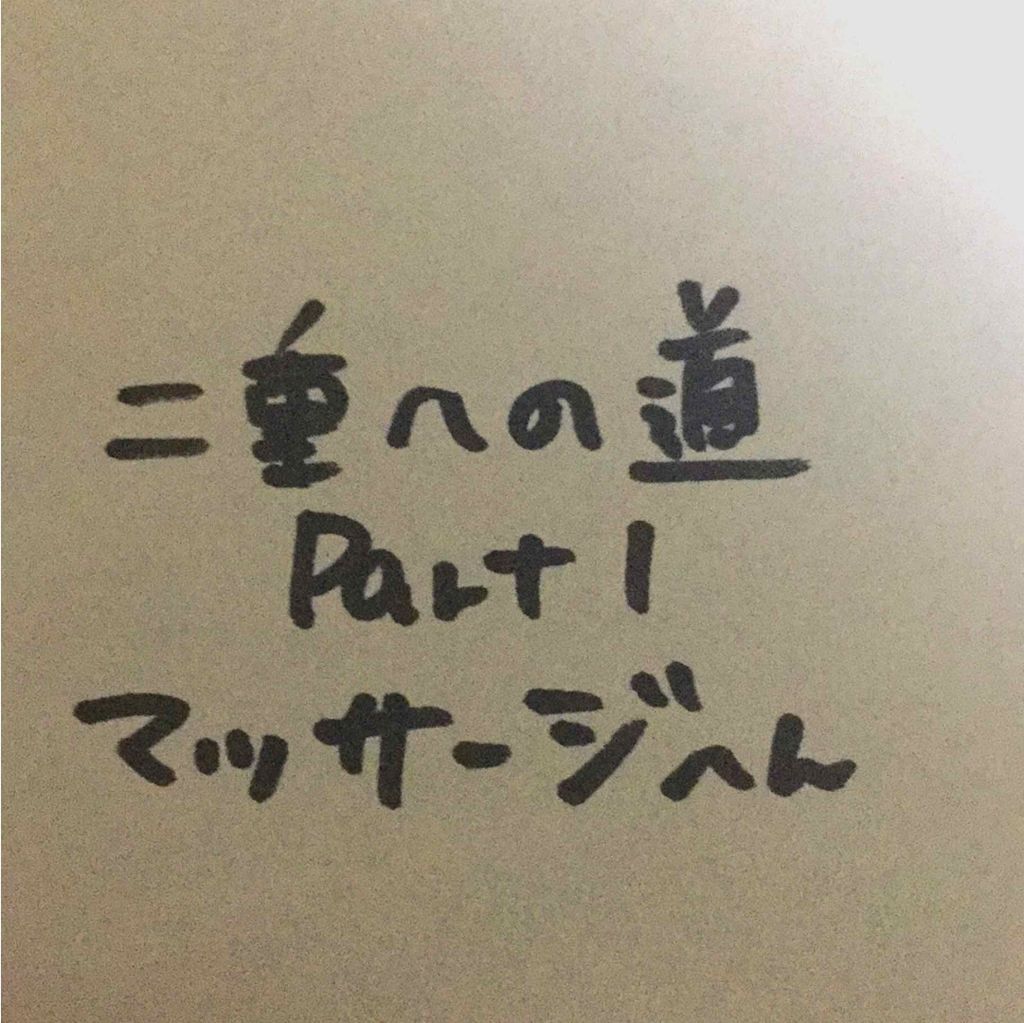 二重への道
Part 1
マッサージへん